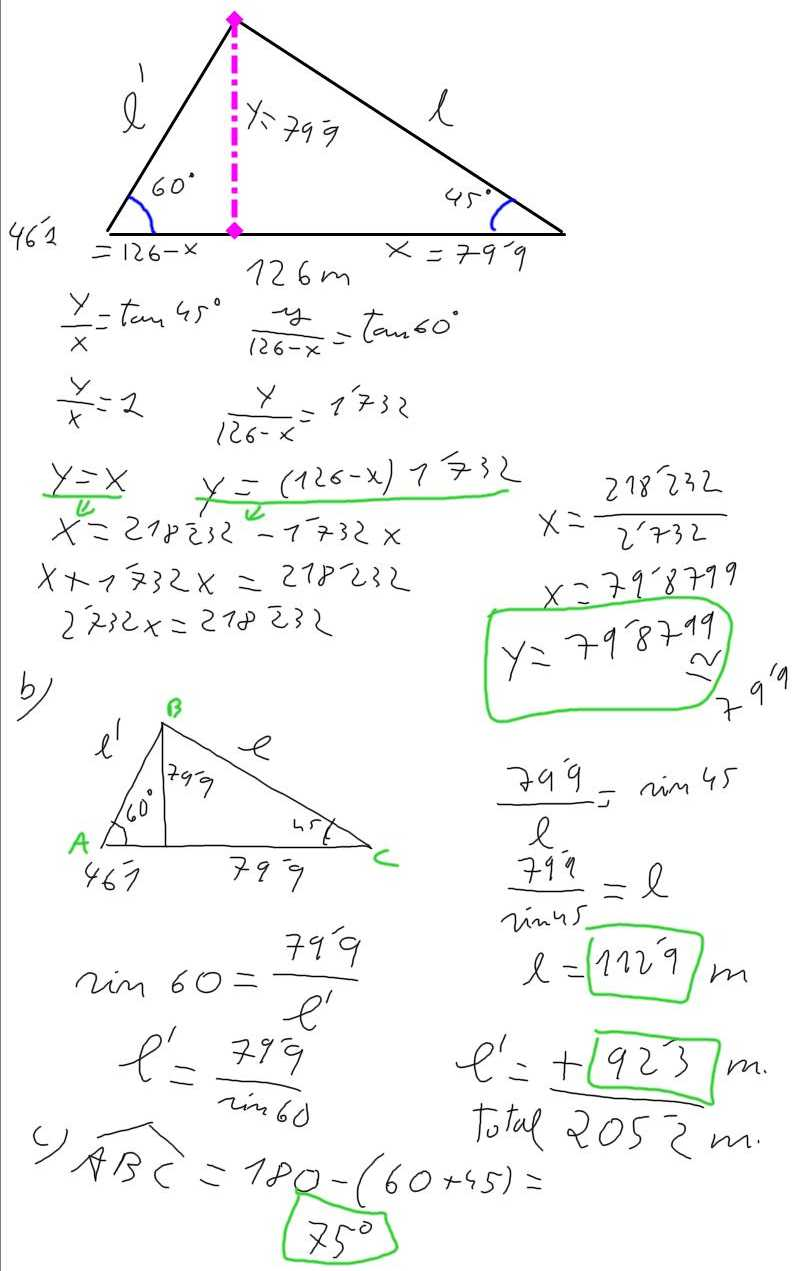 l'
l
y = 79'9
60°
45°
46'1
= 126-x
x = 79'9
126 m
y/x = tan 45°
y/(126-x) = tan 60°
y/x = 1
y/(126-x) = 1'732
y = x
y = (126-x) 1'732
x = 218'232 - 1'732 x
x + 1'732 x = 218'232
2'732 x = 218'232
x = 218'232/2'732
x = 79'8799
y = 79'8799
≃ 79'9
b)
B
l'
l
79'9
60°
45
A
C
46'1
79'9
79'9/l = sin 45
79'9/sin 45 = l
l = 112'9 m
sin 60 = 79'9/l'
l' = 79'9/sin 60
l' = + 92'3 m.
total 205'2 m.
c) ABC = 180 - (60+45) =
75°